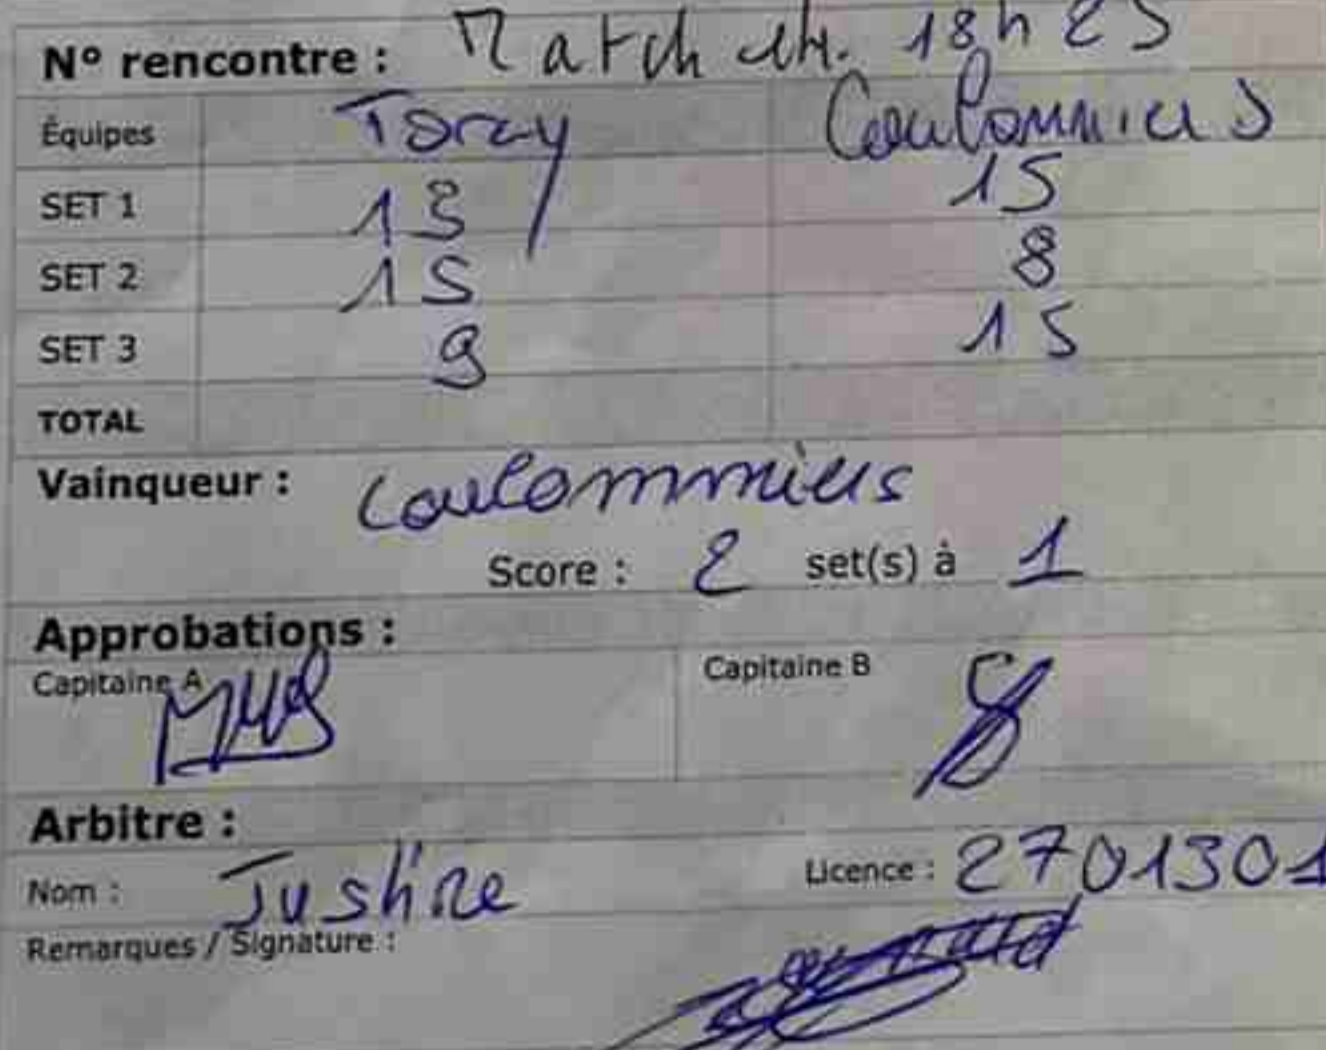 N° rencontre : Match 18h25
Équipes Torcy Coulommiers
SET 1 13 15
SET 2 15 8
SET 3 9 15
TOTAL
Vainqueur : Coulommiers
Score : 2 set(s) à 1
Approbations :
Capitaine A Capitaine B
Arbitre :
Nom : Justine Licence : 2701301
Remarques / Signature :